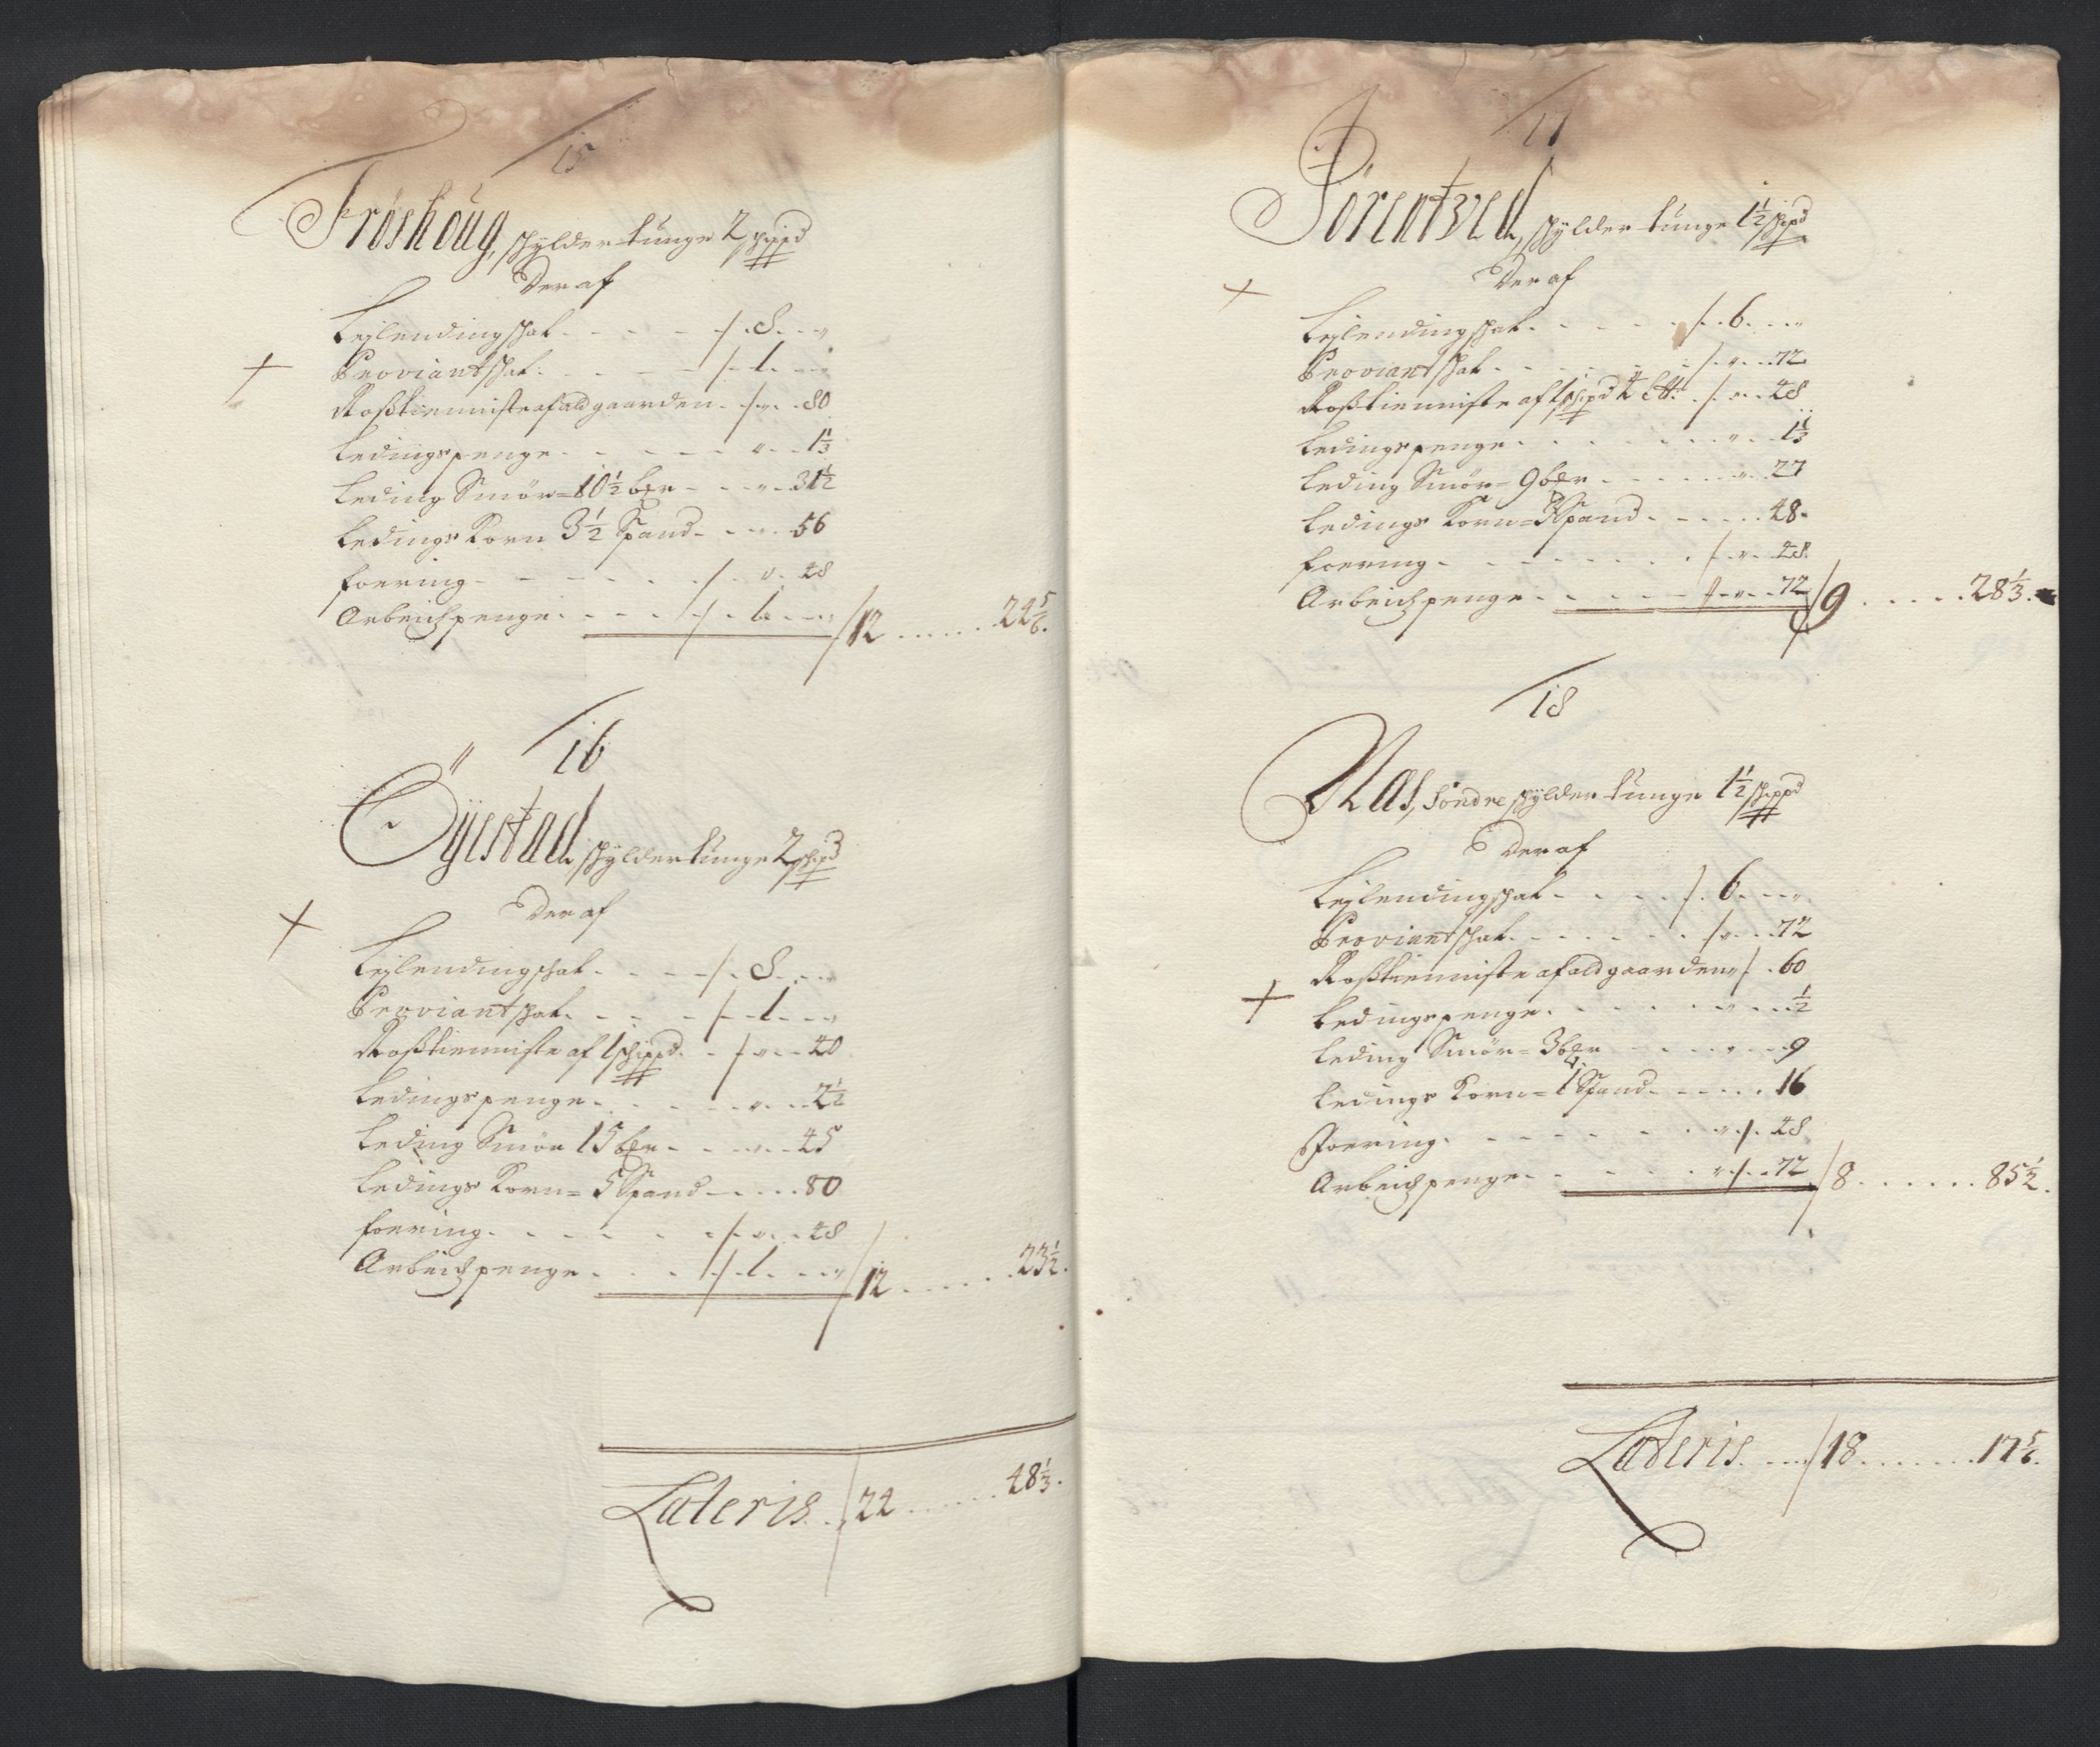 15
Frøshoug, skylder tunge 2 skippd
Der af
Leylendingskat - - - - 8 - - "
Proviantskat - - - - 1 - - "
Rosstienniste af ald gaarden - " - 80
Ledingspenge - - - - - " - 1 1/3
Leding Smør = 10 1/2 br - - " - 31 1/2
Ledings Korn 3 1/2 Spand - - " - 56
foering - - - - - " - 48
Arbeidspenge - - - - 1 - - " / 12 - - - - 24 5/6.
16
Öÿestad, skylder tunge 2 skipd
Der af
Leylendingskat - - - - 8 - - "
Proviantskat - - - - 1 - - "
Rosstienniste af 1 skippd - - " - 40
Ledingspenge - - - - - " - 2 1/2
Leding Smør 15 br - - " - 45
Ledings Korn = 5 Spand - - - - 80
foering - - - - - " - 48
Arbeidspenge - - - - 1 - - " / 12 - - - - 23 1/2.
Lateris - - 24 - - - - 48 1/3.
17
Sørentved, skylder tunge 1 1/2 skipd
Der af
Leylendingskat - - - - 6 - - "
Proviantskat - - - - - " - 72
Rosstienniste af 1 skipd 4 - " - 48
Ledingspenge - - - - - " - 1 1/3
Leding Smør = 9 br - - - " - 27
Ledings Korn = 3 Spand - - - - 48
foering - - - - - " - 48
Arbeidspenge - - - - - " - 72 / 9 - - - - 28 1/3.
18
Nas, Søndre skylder tunge 1 1/2 skippd
Der af
Leylendingskat - - - - 6 - - "
Proviantskat - - - - - " - 72
Rosstienniste af ald gaarden " - 60
Ledingspenge - - - - - " - 1/2
Leding Smør = 3 br - - - " - 9
Ledings Korn = 1 Spand - - - - 16
Foering - - - - - " - 48
Arbeidspenge - - - - - " - 72 / 8 - - - - 85 1/2.
Lateris - - 18 - - - - 17 5/6.